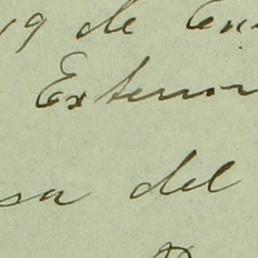 19 de En
Exterior
sa del